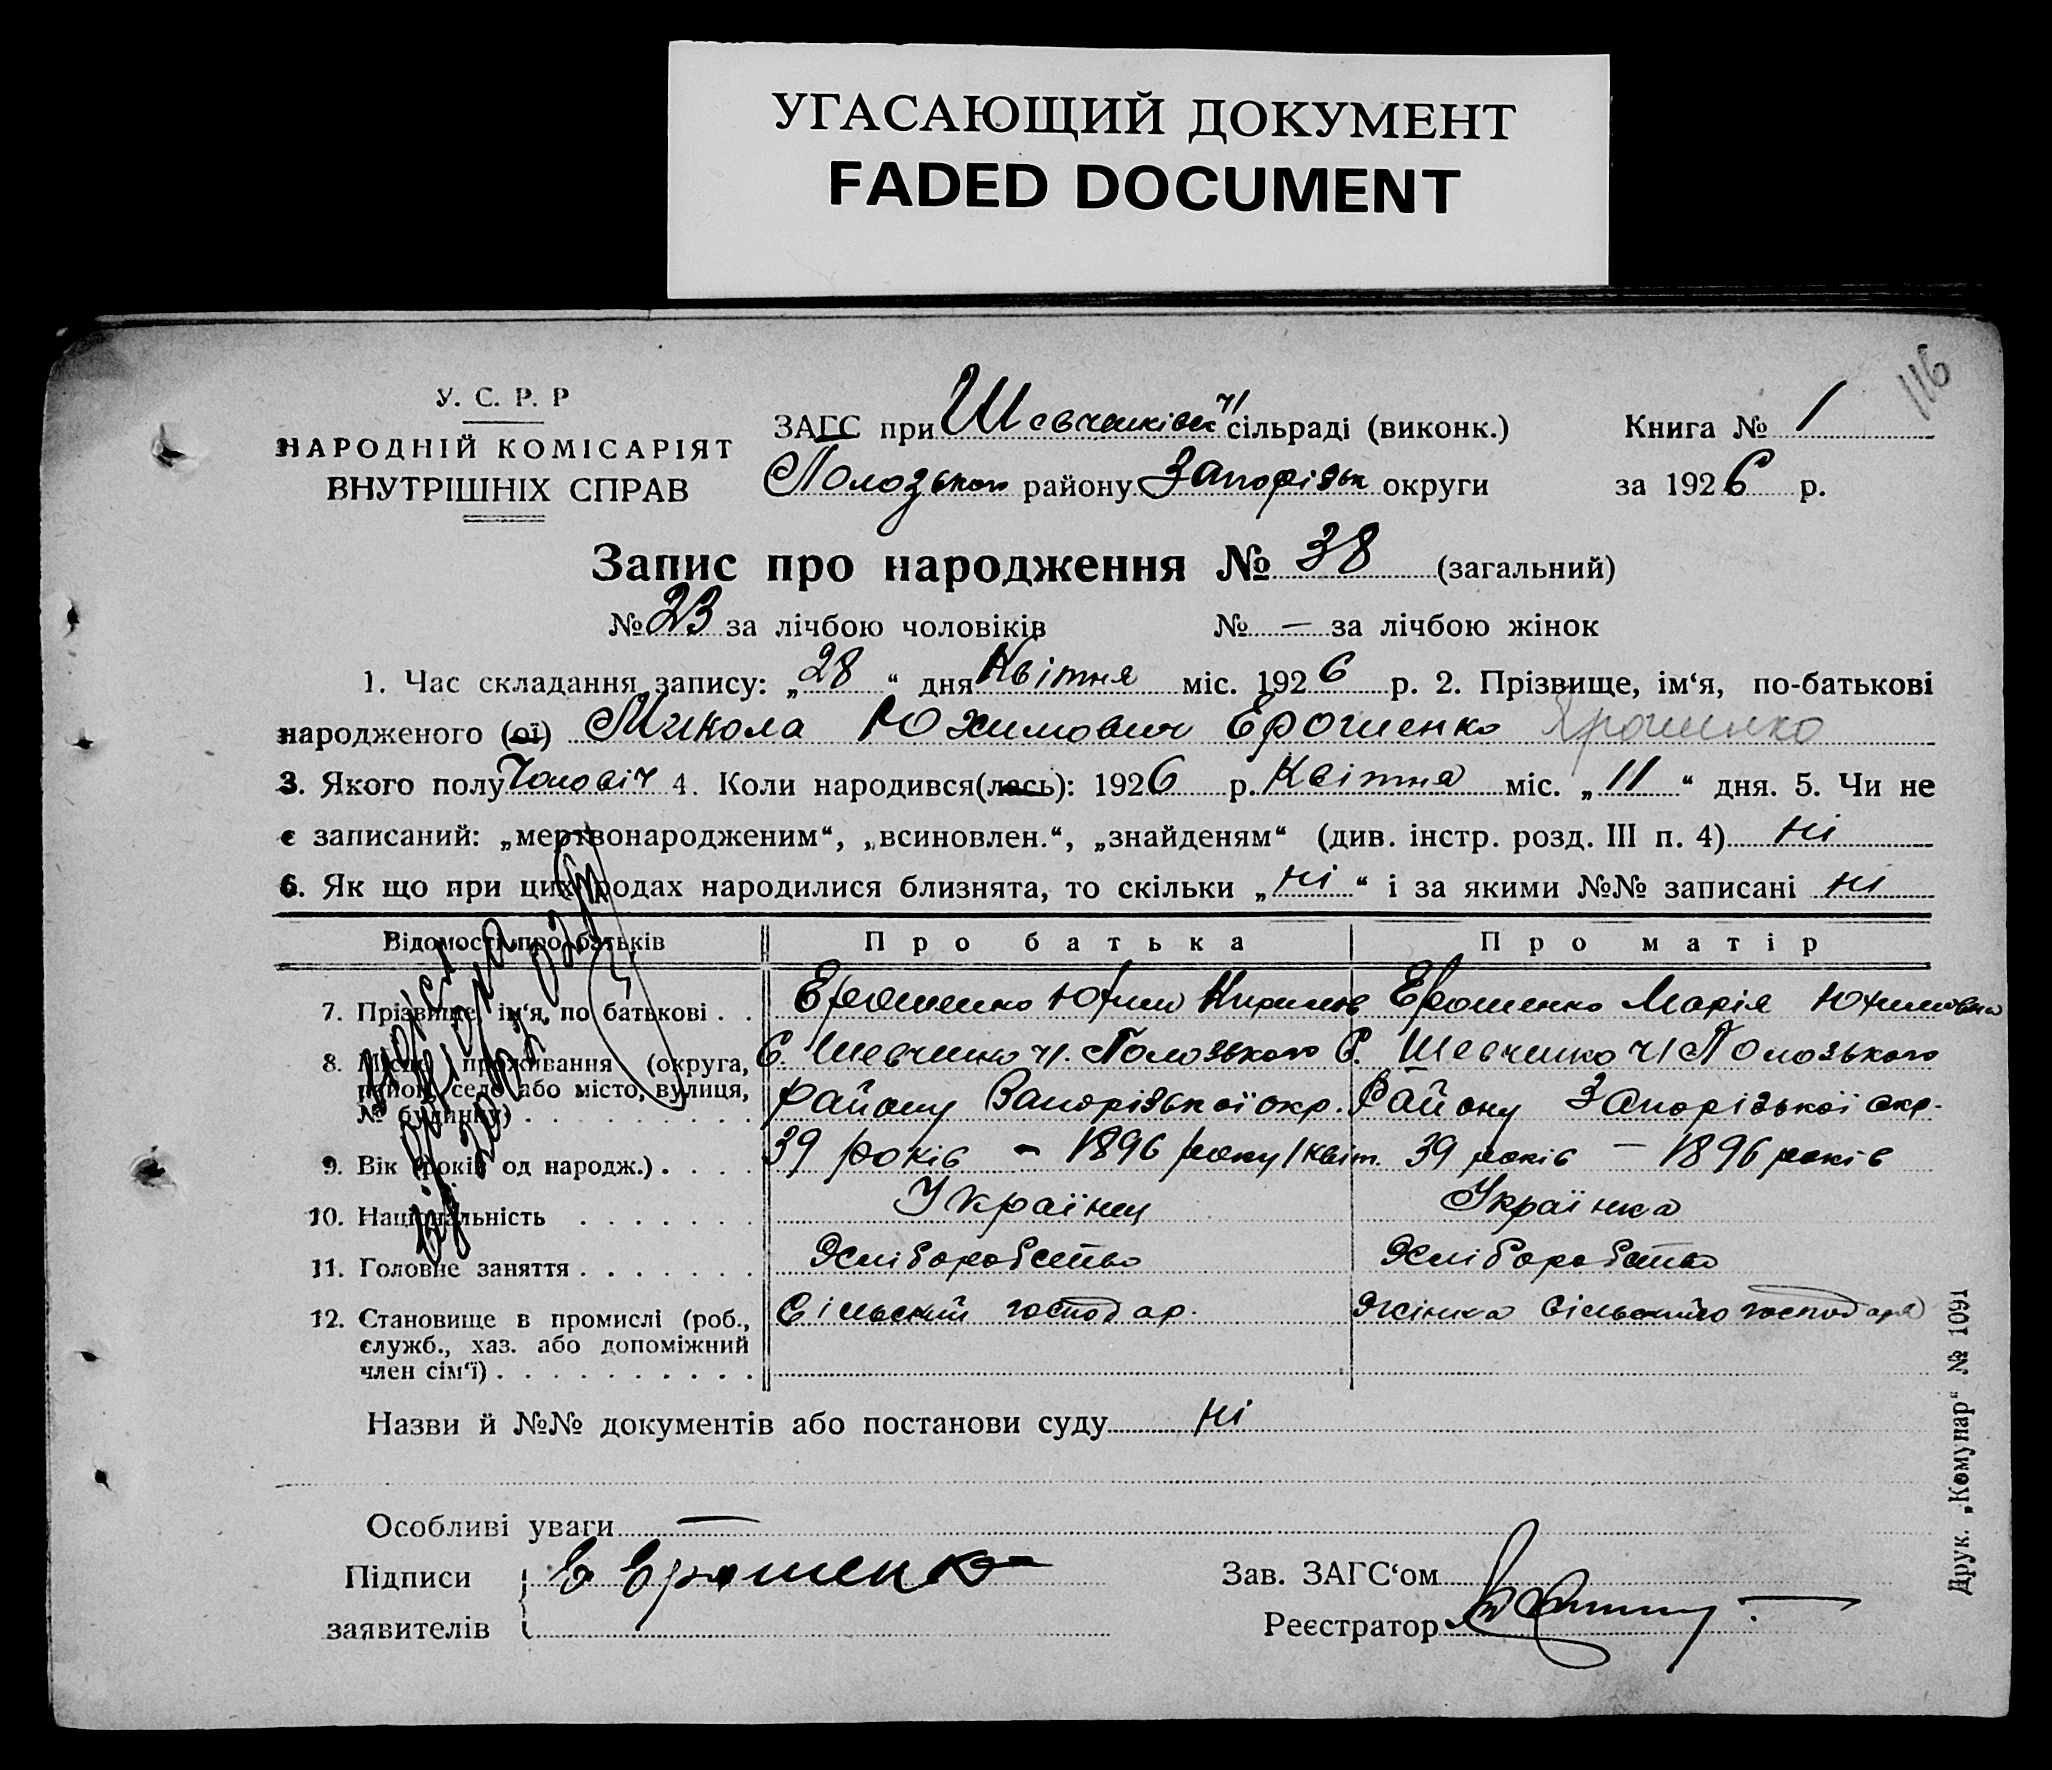 УГАСАЮЩИЙ ДОКУМЕНТ
FADED DOCUMENT
116
У. С. Р. Р
НАРОДНІЙ КОМІСАРІЯТ
ВНУТРІШНІХ СПРАВ
ЗАГС при Шевченківск ч1 сільраді (виконк.)
Полозького району Запорізьк округи
Книга № 1
за 1926 р.
Запис про народження № 38 (загальний)
№ 23 за лічбою чоловіків № — за лічбою жінок
1. Час складання запису: „28“ дня Квітня міс. 1926 р. 2. Прізвище, ім‘я, по-батькові
народженого (ої) Микола Юхимович Ерошенко Ярошенко
3. Якого полу Чоловіч 4. Коли народився(лась): 1926 р. Квітня міс. „11“ дня. 5. Чи не
є записаний: „мертвонародженим“, „всиновлен.“, „знайденям“ (див. інстр. розд. III п. 4) ні
6. Як що при цих родах народилися близнята, то скільки „ні“ і за якими №№ записані ні
Відомості про батьків Про батька Про матір
7. Прізвище, ім‘я, по батькові . . Ерошенко Юхим Кирилов Ерошенко Марія Юхимовна
8. Місце проживання (округа, С. Шевченко ч1. Полозького С. Шевченко ч1 Полозького
район, село або місто, вулиця, району Запорізької окр. Району Запорізької окр.
№ будинку)
9. Вік (років од народж.) . . . . 39 років - 1896 року 1 квіт. 39 років — 1896 років
10. Національність . . . . . . . Українец Українка
11. Головне заняття . . . . . . . Хліборобство Хліборобство
12. Становище в промислі (роб., Сільский господар. Жінка Сільського господаря
служб., хаз. або допоміжний
член сім‘ї) . . . . . . . . . .
Назви й №№ документів або постанови суду ні
Особливі уваги —
Підписи Е Ерошенко
заявителів
Зав. ЗАГС‘ом
Реєстратор
Друк. „Комунар“ № 1091